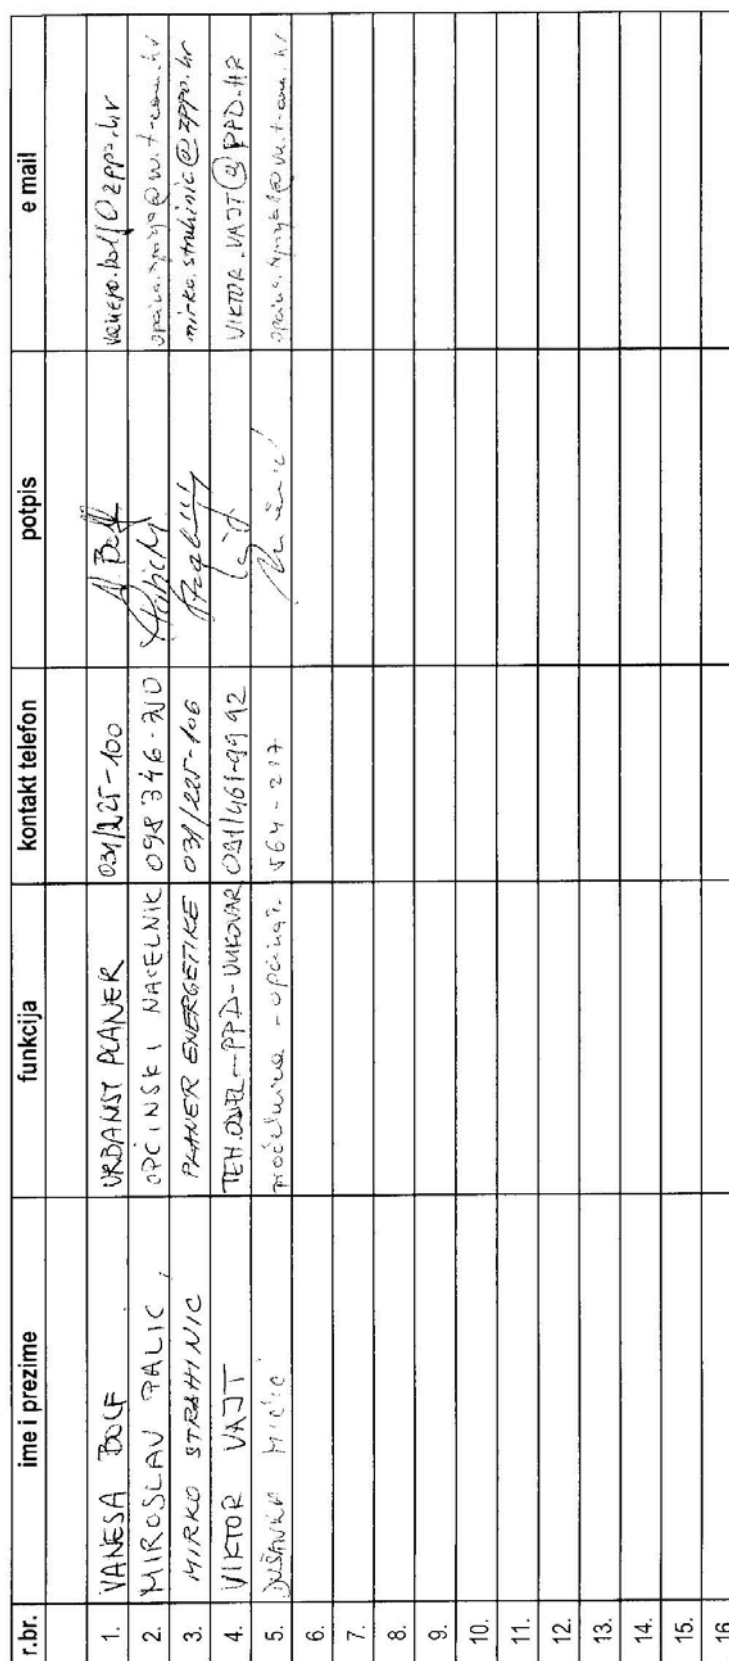 r.br. ime i prezime funkcija kontakt telefon potpis e mail
1. VANESA BOLF URBANIST PLANER 031/225-100 V. Bolf vanesa.bolf@zppo.hr
2. MIROSLAV PALIC, OPĆINSKI NAČELNIK 098 346-710
3. MIRKO STRAHINIC PLANER ENERGETIKE 031/225-106 mirko.strahinic@zppo.hr
4. VIKTOR VAJT TEH.ODJEL-PPD-VUKOVAR 091/461-99 92 VIKTOR.VAJT@PPD.HR
5. DUŠANKA pročelnica - 564-217
6.
7.
8.
9.
10.
11.
12.
13.
14.
15.
16.